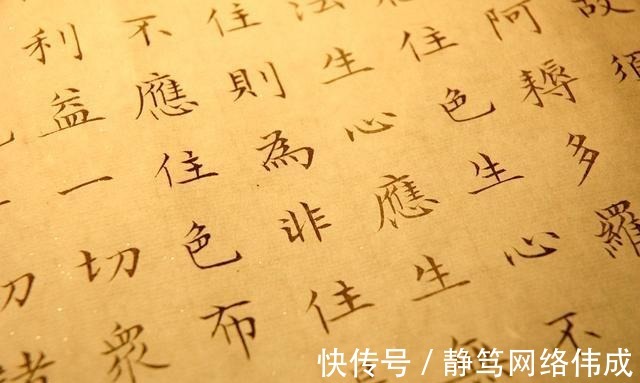 故須
阿耨多羅
住色生心不
法生心應生
住則為非住
不應住色布
利益一切眾
快传号/静笃网络伟成